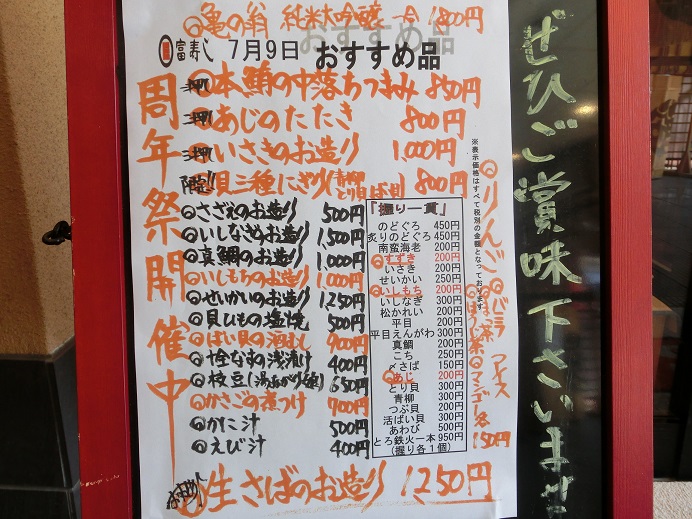 ◎亀の翁 純米大吟醸 一合 1800円
富寿し 7月9日 おすすめ品
周年祭開催中
◎本鮪の中落ちつまみ 850円
◎あじのたたき 800円
◎いさきのお造り 1,000円
貝三種にぎり(青柳 とり貝 ) 800円
◎さざえのお造り 500円
◎いしなぎのお造り 1,500円
◎真鯛のお造り 1,000円
◎いしもちのお造り 1,000円
◎せいかいのお造り 1,250円
◎貝ひもの塩焼 500円
◎ばい貝の酒むし 900円
◎十全なすの浅漬け 400円
◎枝豆(湯あがり娘) 650円
◎かさごの煮つけ 700円
◎かに汁 500円
◎えび汁 400円
生さばのお造り 1250円
「握り一貫」
のどぐろ 450円
炙りのどぐろ 450円
南蛮海老 200円
◎すずき 200円
いさき 200円
せいかい 250円
◎いしもち 200円
いしなぎ 300円
松かれい 200円
平目 200円
平目えんがわ 300円
真鯛 200円
こち 250円
〆さば 150円
◎あじ 200円
とり貝 300円
青柳 200円
つぶ貝 200円
活ばい貝 300円
あわび 500円
とろ鉄火一本 950円
(握り各1個)
※表示価格はすべて税別の金額となっております。
◎りんご ◎バニラ
アイス
各150円
ぜひご賞味下さいませ